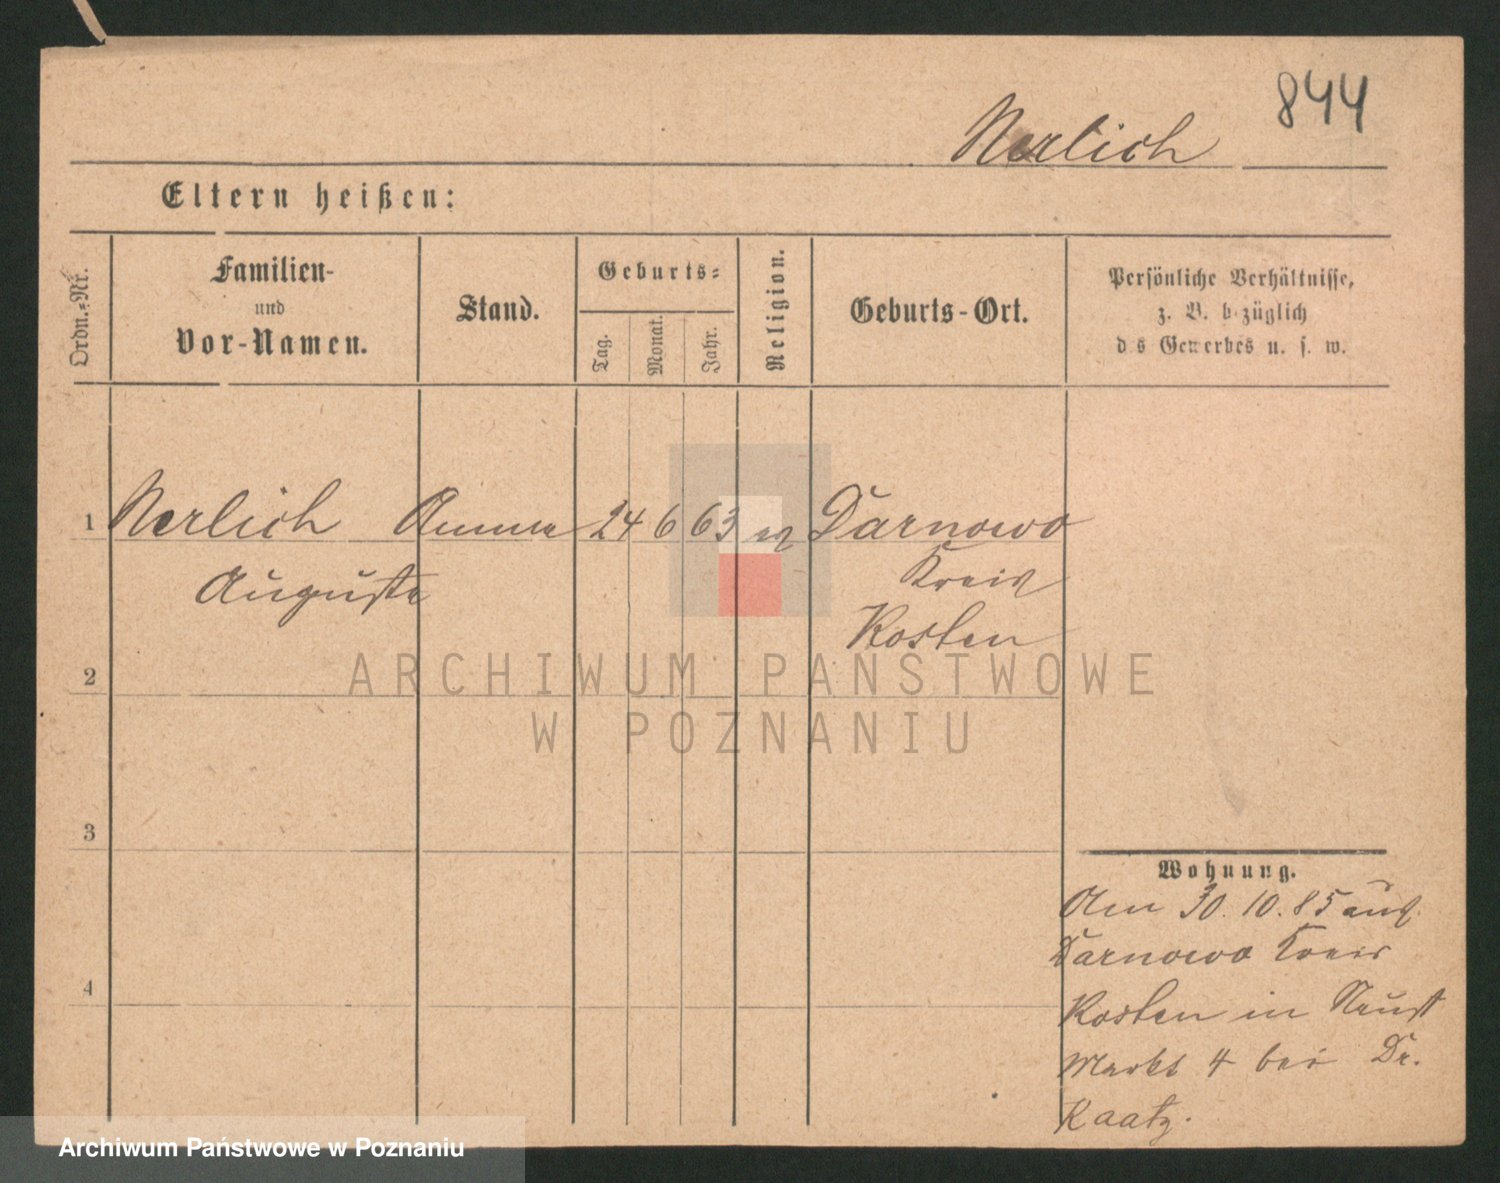 844
Nerlich
Eltern heißen:
Ordn.-Nr.
Familien-
und
Vor-Namen.
Stand.
Geburts-
Tag.
Monat.
Jahr.
Religion.
Geburts-Ort.
Persönliche Verhältnisse,
z. B. bezüglich
des Gewerbes u. s. w.
1 Nerlich Amme 24 6 63 ev Darnowo
Auguste Kreis
Kosten
2
3
4
Wohnung.
Am 30. 10. 85 aus
Darnowo Kreis
Kosten in
Markt 4 bei Dr.
Kaatz.
ARCHIWUM PAŃSTWOWE
W POZNANIU
Archiwum Państwowe w Poznaniu